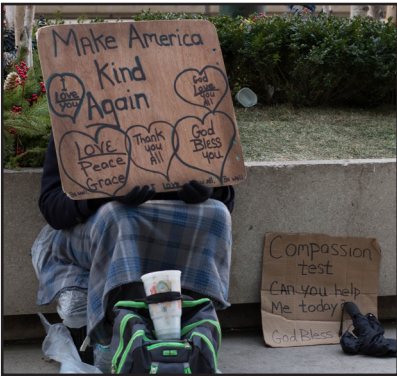 Make America
Kind
Again
I
Love
you
God
Loves
You
All
LOVE
Peace
Grace
Thank
you
All
God
Bless
you
I Love
Compassion
test
Can you help
Me today?
God Bless